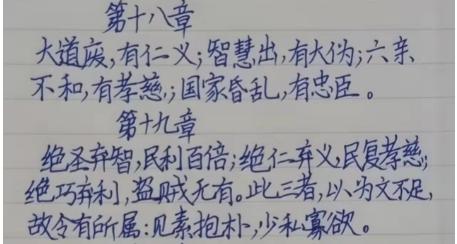 第十八章
大道废,有仁义;智慧出,有大伪;六亲
不和,有孝慈;国家昏乱,有忠臣。
第十九章
绝圣弃智,民利百倍;绝仁弃义,民复孝慈;
绝巧弃利,盗贼无有。此三者,以为文不足,
故令有所属:见素抱朴,少私寡欲。